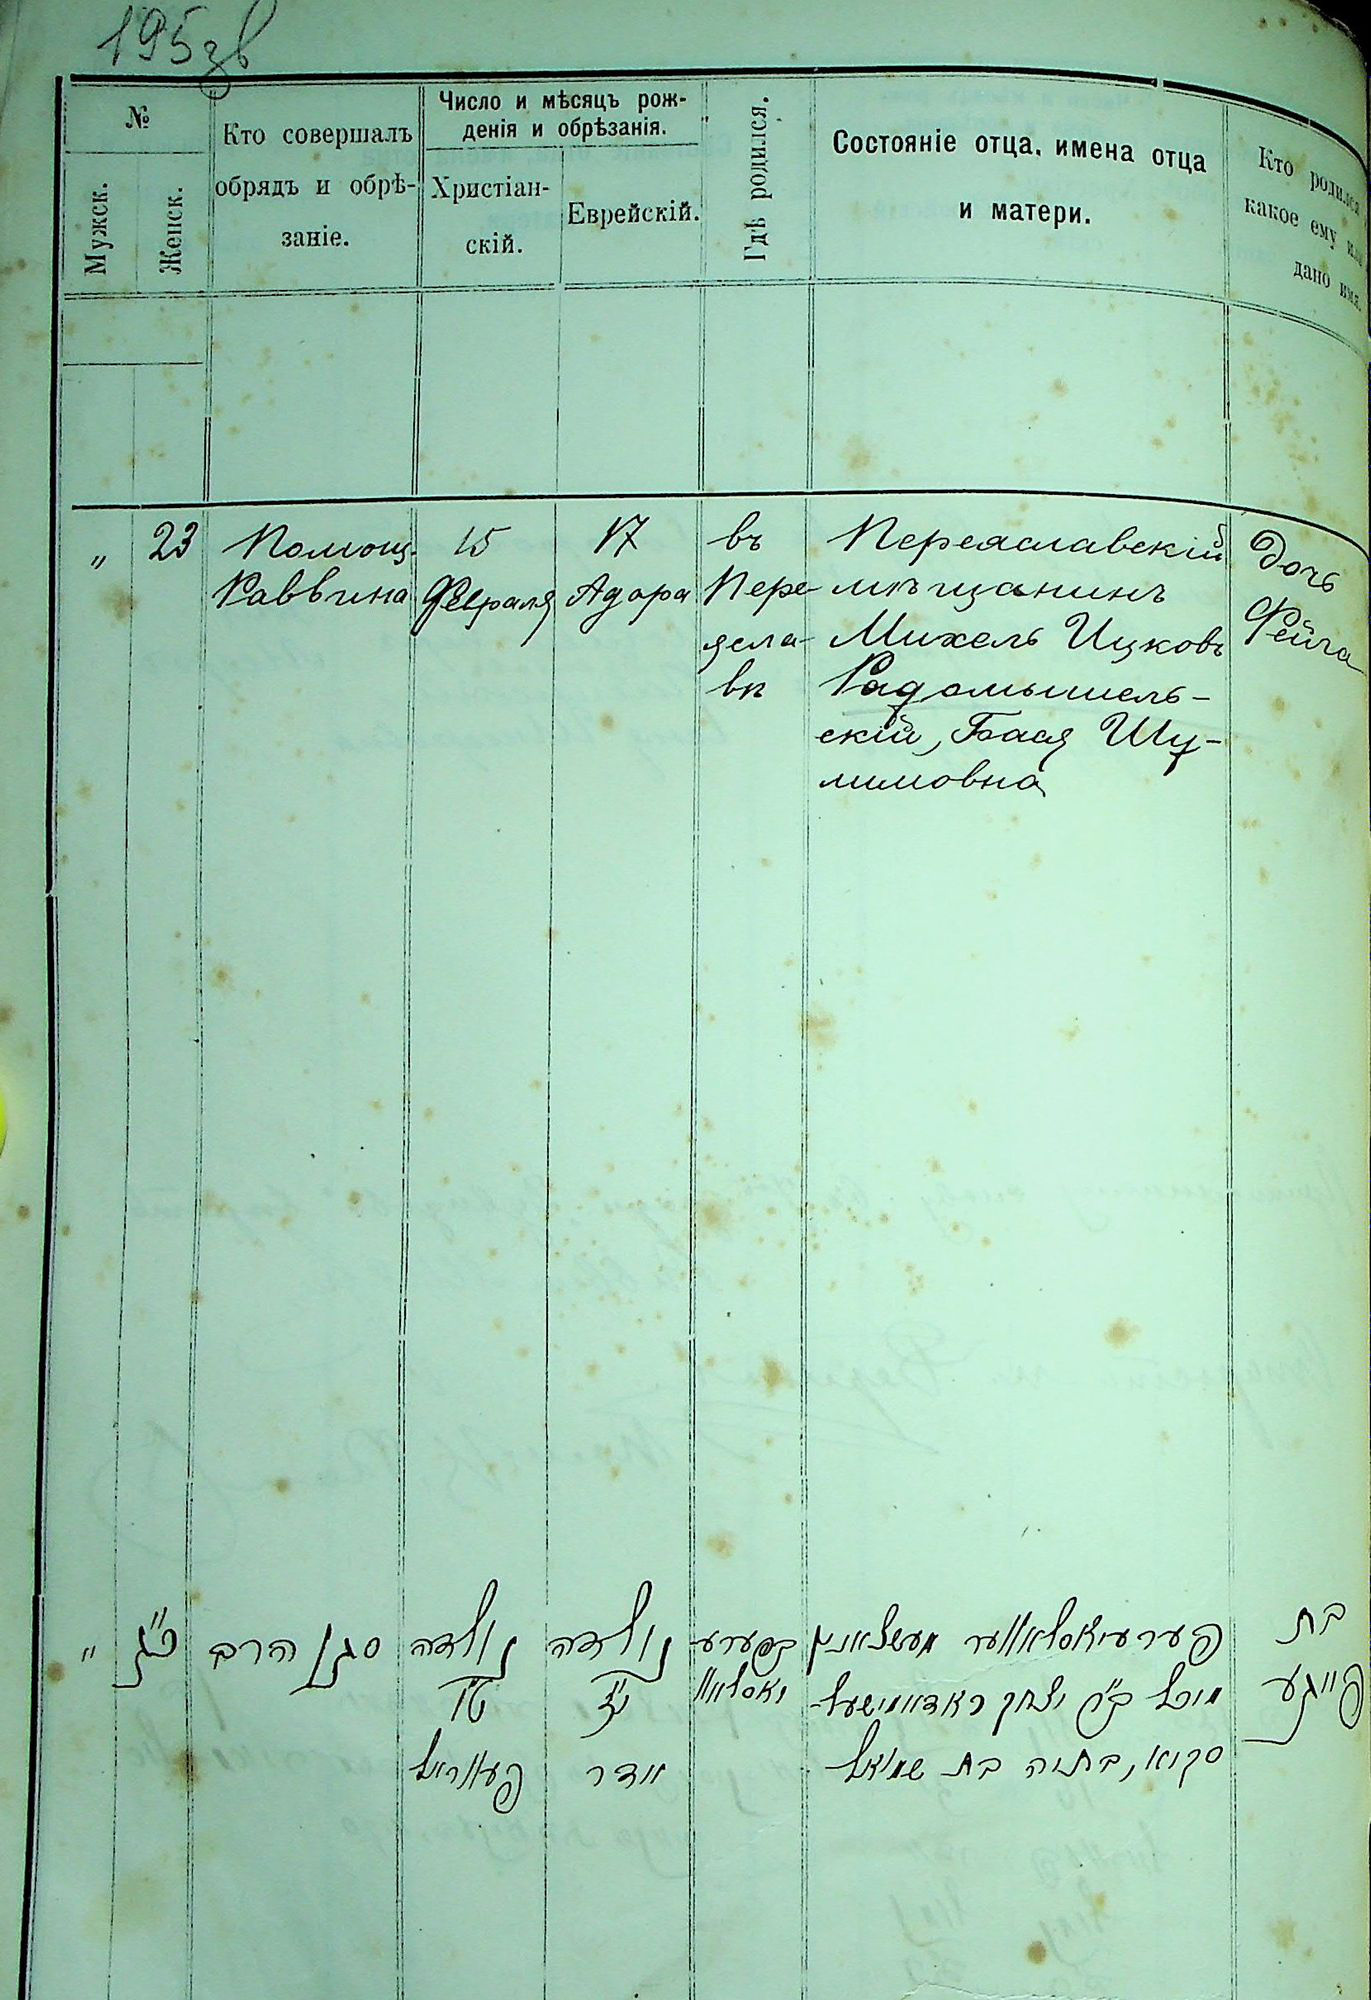 195 зв
№
Мужск.
Женск.
Кто совершалъ
обрядъ и обрѣ-
заніе.
Число и мѣсяцъ рож-
денія и обрѣзанія.
Христіан-
скій.
Еврейскій.
Гдѣ родился.
Состояніе отца, имена отца
и матери.
Кто родился
какое ему или
дано имя.
„
23
Помощ.
Раввина
15
Февраля
17
Адара
въ
Пере-
ясла-
вѣ
Переяславскій
мѣщанинъ
Михель Ицковъ
Радомышель-
скій, Бася Шу-
лимовна
Дочь
Фейга
״
כ״ג
סגן הרב
נולדה
ט״ו
פעווראל
נולדה
י״ז
אדר
בפערע
יאסלאוו
פערעיאסלאווער מעשצאנין
מיכל ב״ר יצחק ראדאמישעל
סקיא, בתיה בת
בת
פייגע